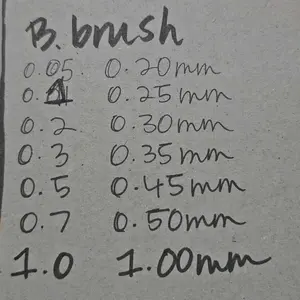 B. brush
0.05 0.20mm
0.1 0.25mm
0.2 0.30mm
0.3 0.35mm
0.5 0.45mm
0.7 0.50mm
1.0 1.00mm